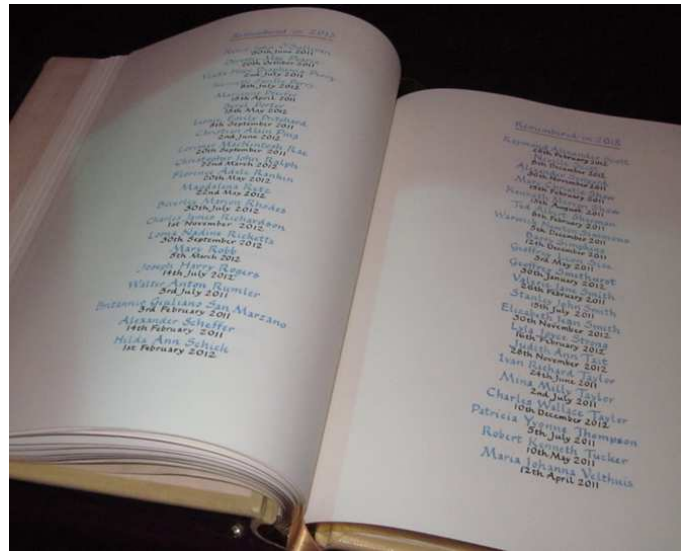 Remembered in 2012
30th June 2011
20th October 2011
2nd July 2011
8th July 2012
Porter
15th April 2011
Porter
15th May 2012
Emile Pritchard
8th September 2011
Christian Alain Puig
2nd June 2012
Lorance MacKintosh Rae
20th September 2011
Christopher John Ralph
22nd March 2012
Florence Adele Rankin
20th May 2012
Magdalena Ratz
22nd May 2012
Beverley Marion Rhodes
30th July 2011
Charles James Richardson
1st November 2012
Lorna Nadine Ricketts
30th September 2012
Mary Robb
5th March 2012
Joseph Harry Rogers
14th July 2012
Walter Anton Rumler
3rd July 2011
Britannic Giuliano San Marzano
3rd February 2011
Alexander Scheffer
14th February 2011
Hilda Ann Schick
1st February 2012
Remembered in 2012
Raymond Alexander Scott
February 2012
December 2012
Alexander
30th November 2011
15th February 2011
Kenneth Mervyn
August 2011
Ted Albert Sherman
8th February 2011
Warwick
5th December 2011
Simpkins
12th December 2011
Geoffrey
3rd May 2011
Geoffrey Smethurst
30th January 2012
Valarie Jane Smith
26th February 2012
Stanley John Smith
15th July 2011
Elizabeth Jean Smith
30th November 2012
Lyla Joyce Strong
16th February 2012
Judith Ann Tait
28th November 2012
Ivan Richard Taylor
24th June 2011
Mina Milly Taylor
2nd July 2011
Charles Wallace Tayler
10th December 2012
Patricia Yvonne Thompson
5th July 2011
Robert Kenneth Tucker
10th May 2011
Maria Johanna Velthuis
12th April 2011